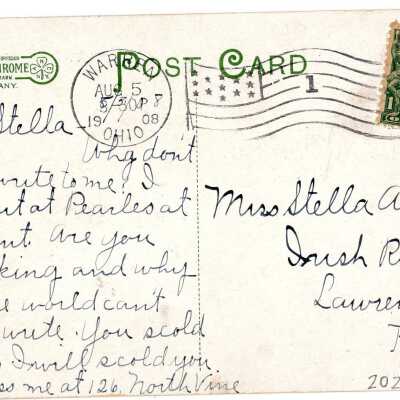 CHROME
ANY.
POST CARD
WARREN
AUG 5
530P
1908
OHIO
1
1
Stella -
Why don't
write to me. I
at Pearles at
Are you
king and why
e world can't
write. You scold
I will scold you.
ss me at 126, North Vine
Miss Stella A
Irish R
Lawren
P
202